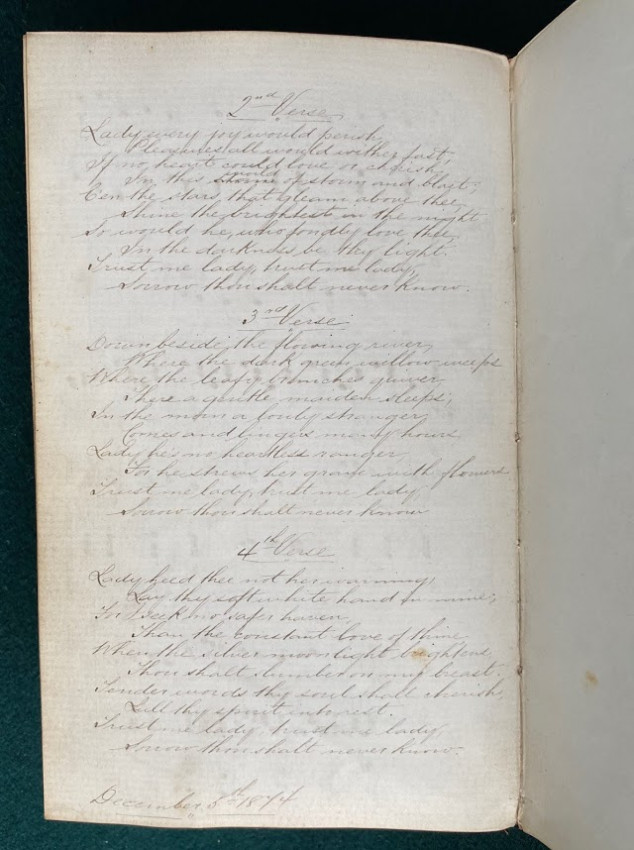 2nd Verse
Lady every joy would perish,
Pleasures all would wither fast,
If no heart could love or cherish,
In this world of storm and blast.
E'en the stars, that gleam above thee,
Shine the brightest in the night
So would he, who fondly love thee,
In the darkness be thy light.
Trust me lady, trust me lady,
Sorrow thou shalt never know.
3rd Verse
Down beside the flowing river,
Where the dark green willow weeps
Where the leafy branches quiver,
There a gentle maiden sleeps,
In the morn a lonely stranger,
Comes and lingers many hours,
Lady he's no heartless ranger,
For he strews her grave with flowers
Trust me lady, trust me lady
Sorrow thou shalt never know
4th Verse
Lady heed thee not her warning,
Lay thy soft white hand in mine,
For I seek no safer haven,
Than the constant love of thine
When the silver moonlight brightens,
Thou shalt slumber on my breast.
Tender words thy soul shall cherish,
Lull thy spirit into rest.
Trust me lady, trust me lady,
Sorrow thou shalt never know.
December 5th 1874